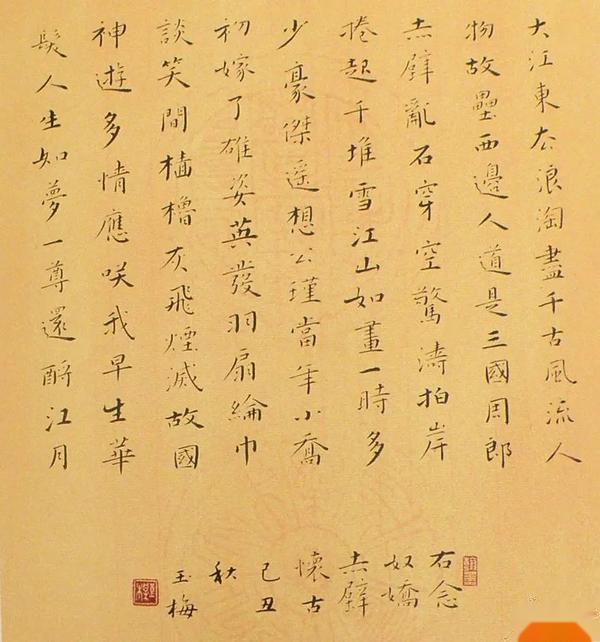 大江東去浪淘盡千古風流人
物故壘西邊人道是三國周郎
赤壁亂石穿空驚濤拍岸
捲起千堆雪江山如畫一時多
少豪傑遥想公瑾當年小喬
初嫁了雄姿英發羽扇綸巾
談笑間檣櫓灰飛煙滅故國
神遊多情應咲我早生華
髮人生如夢一尊還酹江月
右念
奴嬌
赤壁
懷古
己丑
秋
玉梅